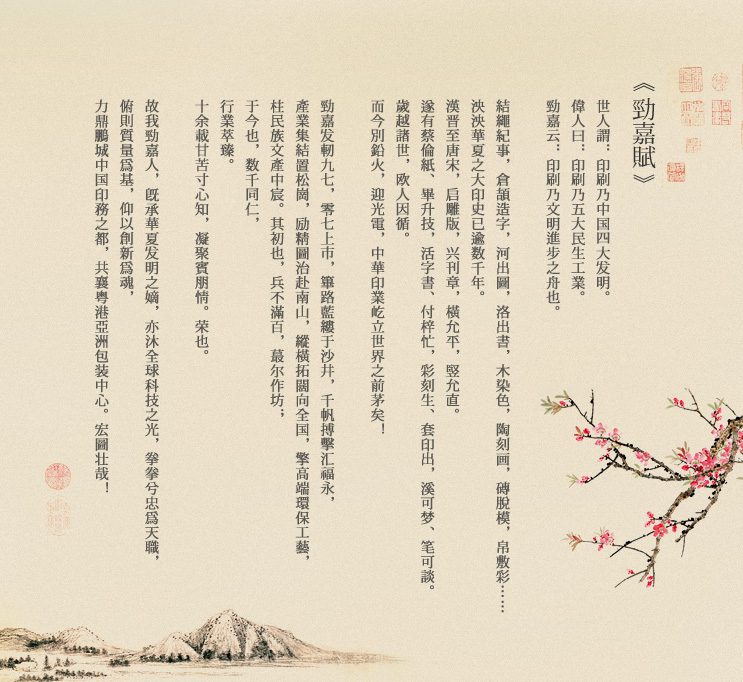 《勁嘉賦》
世人謂：印刷乃中国四大发明。
偉人曰：印刷乃五大民生工業。
勁嘉云：印刷乃文明進步之舟也。
結繩紀事，倉頡造字，河出圖，洛出書，木染色，陶刻画，磚脫模，帛敷彩……
泱泱華夏之大印史已逾数千年。
漢晋至唐宋，启雕版，兴刊章，橫允平，竪允直。
遂有蔡倫紙、畢升技，活字書、付梓忙，彩刻生、套印出，溪可梦、笔可談。
歲越諸世，欧人因循。
而今別鉛火，迎光電，中華印業屹立世界之前茅矣！
勁嘉发軔九七，零七上市，篳路藍縷于沙井，千帆搏擊汇福永，
產業集結置松崗，励精圖治赴南山，縱橫拓闊向全国，擎高端環保工藝，
柱民族文產中宸。其初也，兵不滿百，蕞尔作坊；
于今也，数千同仁，
行業萃臻。
十余載甘苦寸心知，凝聚賓朋情。荣也。
故我勁嘉人，旣承華夏发明之嫡，亦沐全球科技之光，拳拳兮忠爲天職，
俯則質量爲基，仰以創新爲魂，
力鼎鵬城中国印務之都，共襄粵港亞洲包裝中心。宏圖壮哉！